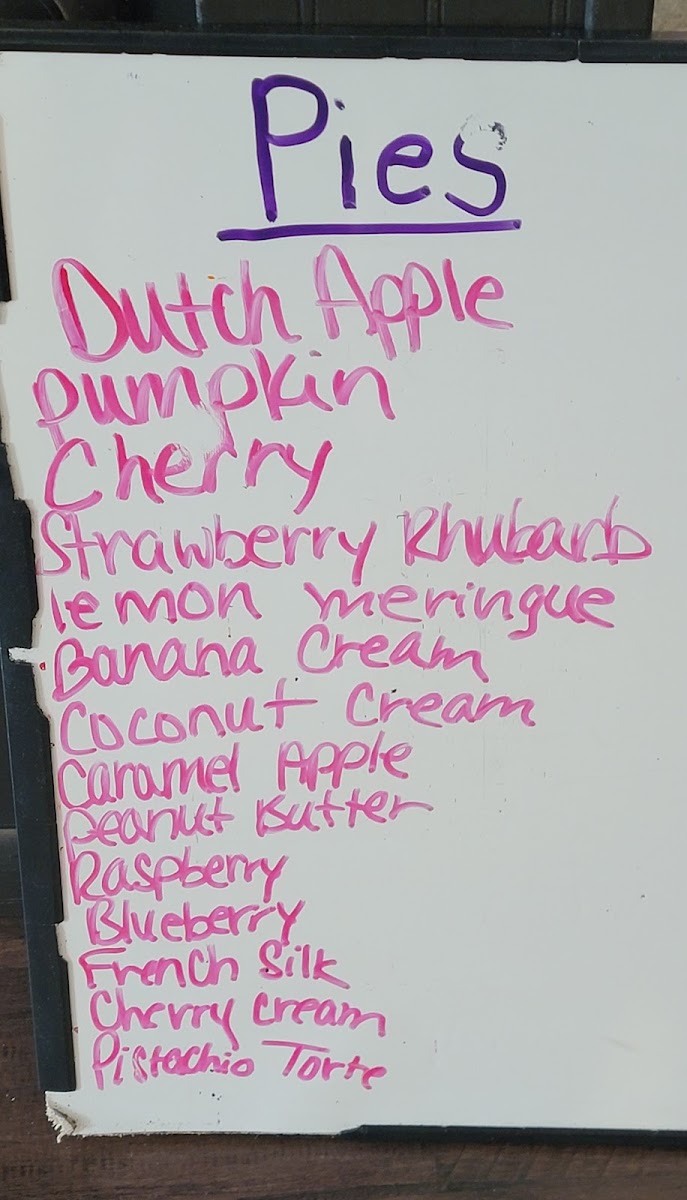 Pies
Dutch Apple
pumpkin
Cherry
Strawberry Rhubarb
lemon meringue
Banana Cream
Coconut Cream
Caramel Apple
Peanut Butter
Raspberry
Blueberry
French Silk
Cherry cream
Pistachio Torte